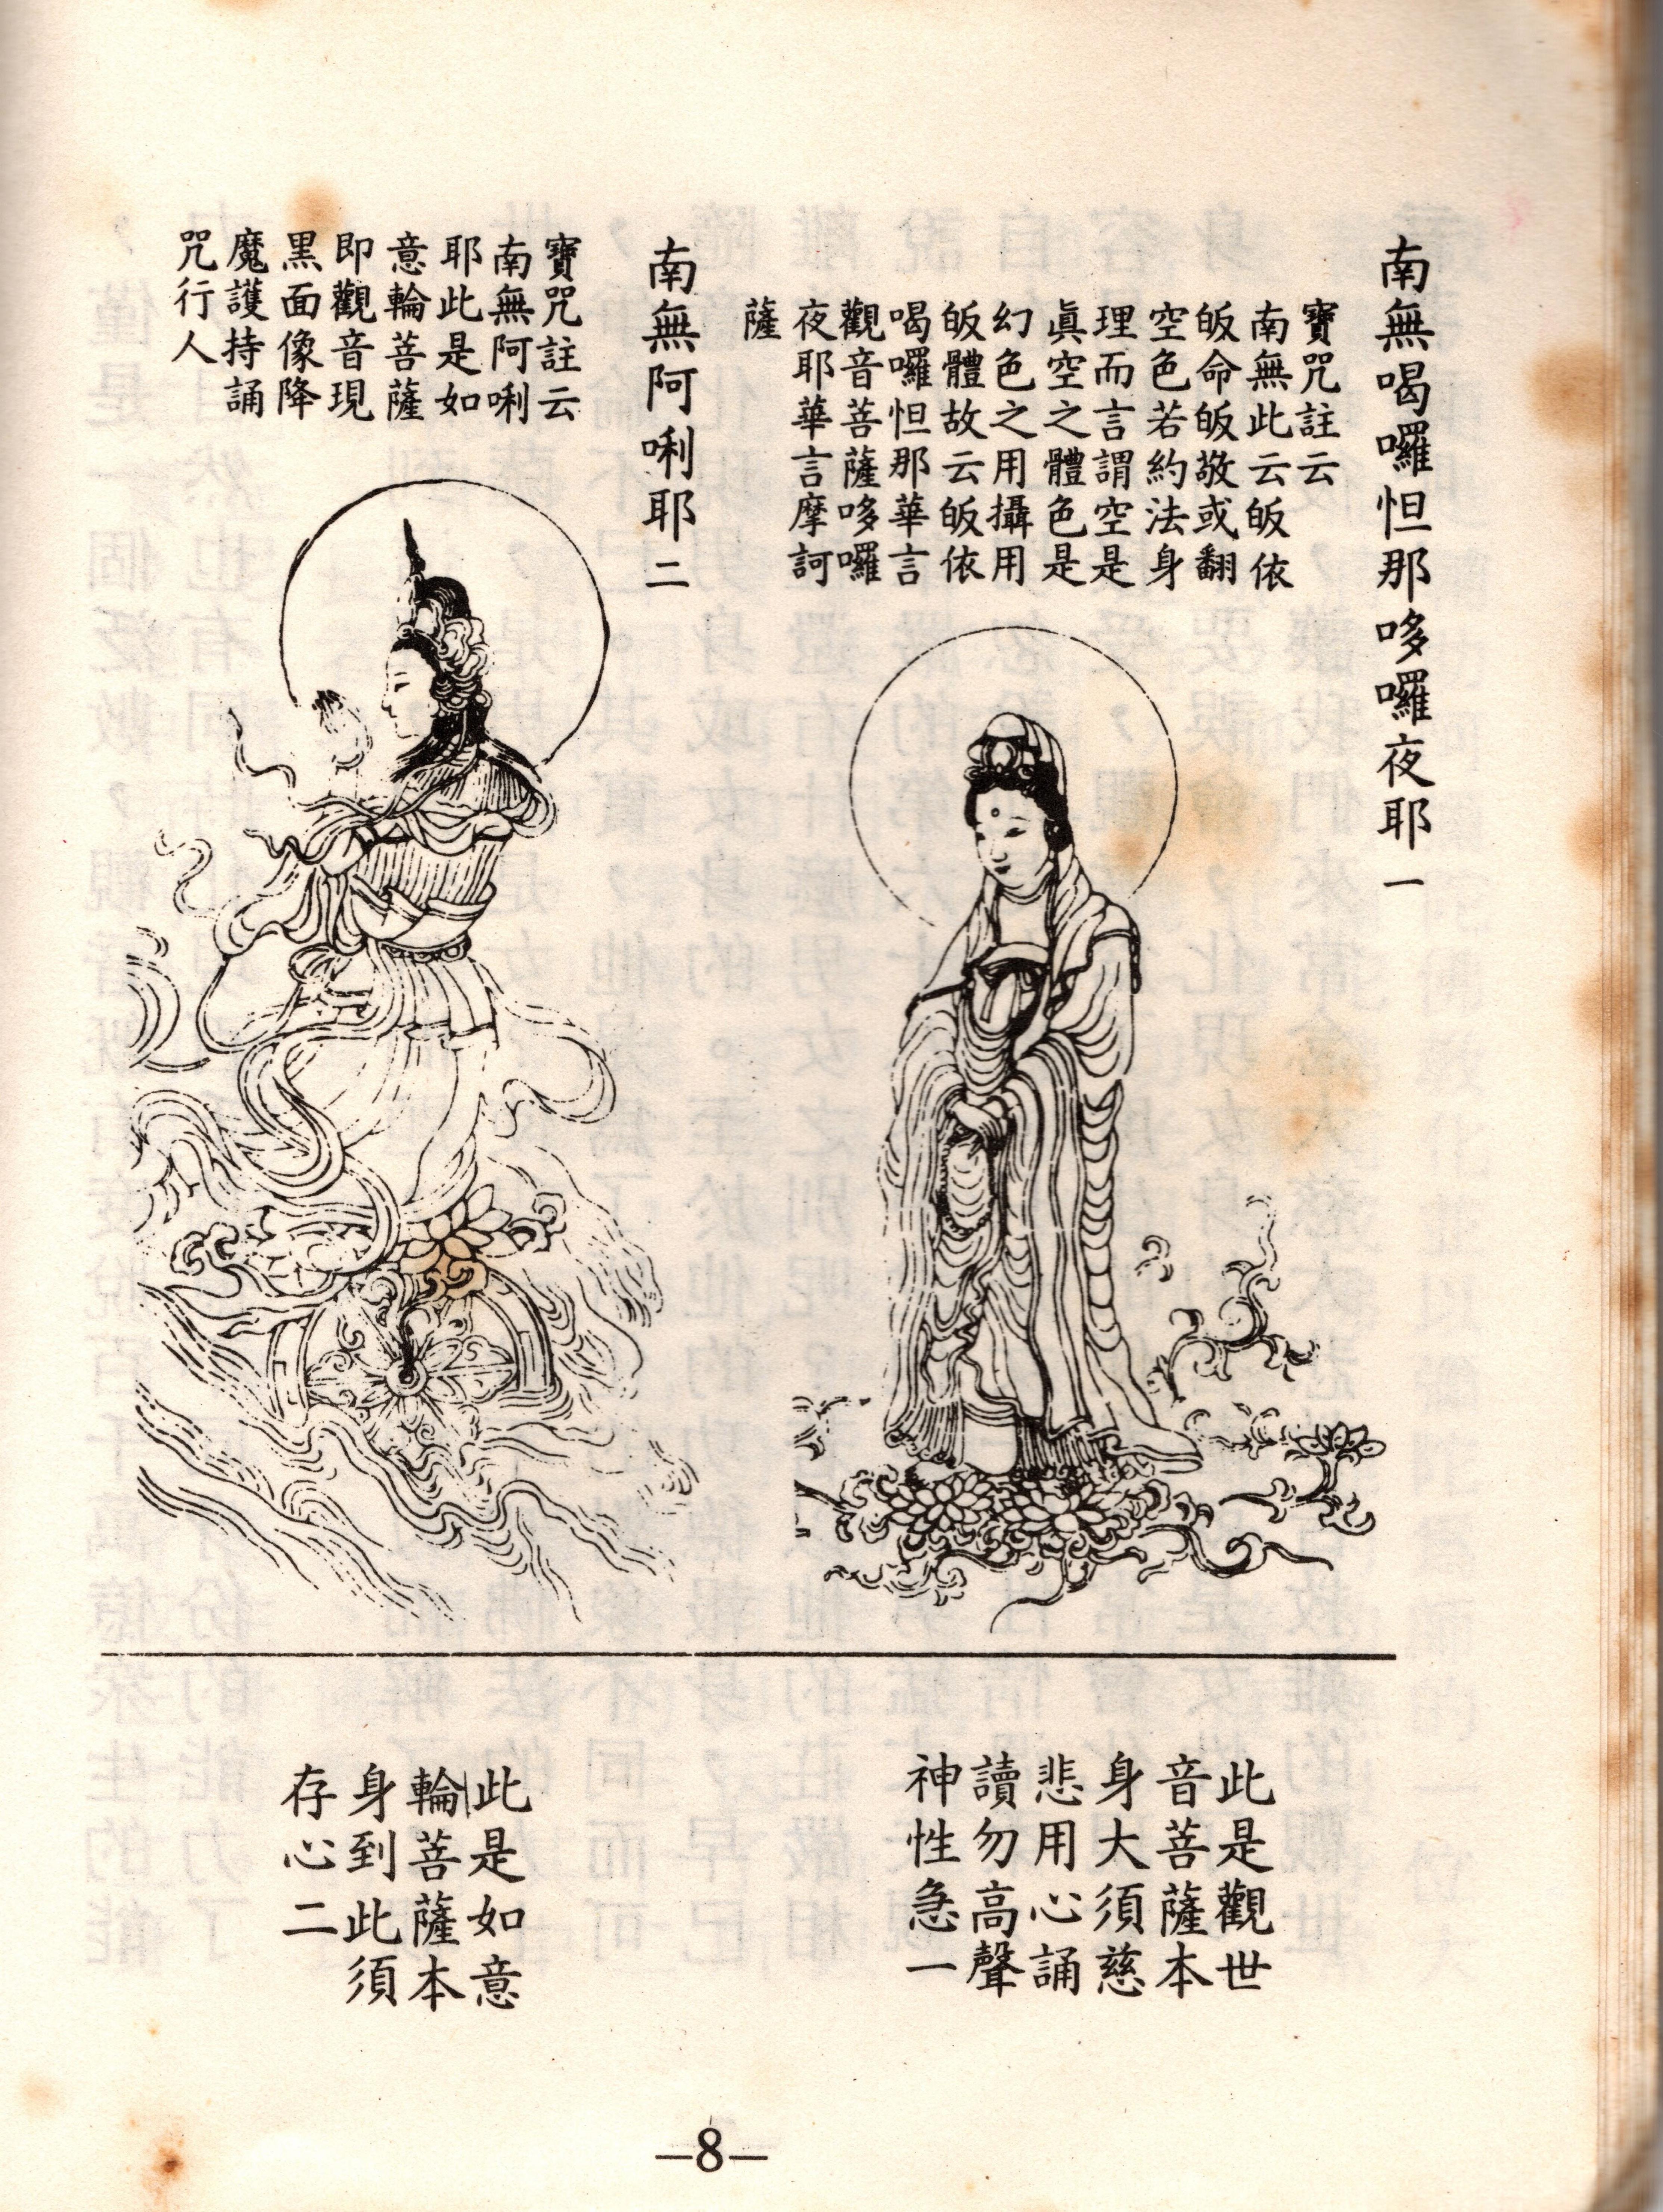 南無喝囉怛那哆囉夜耶一
寶咒註云
南無此云皈依
皈命皈敬或翻
空色若約法身
理而言謂空是
眞空之體色是
幻色之用攝用
皈體故云皈依
喝囉怛那華言
觀音菩薩哆囉
夜耶華言摩訶
薩
南無阿唎耶二
寶咒註云
南無阿唎
耶此是如
意輪菩薩
即觀音現
黑面像降
魔護持誦
咒行人
此是觀世
音菩薩本
身大須慈
悲用心誦
讀勿高聲
神性急一
此是如意
輪菩薩本
身到此須
存心二
—8—